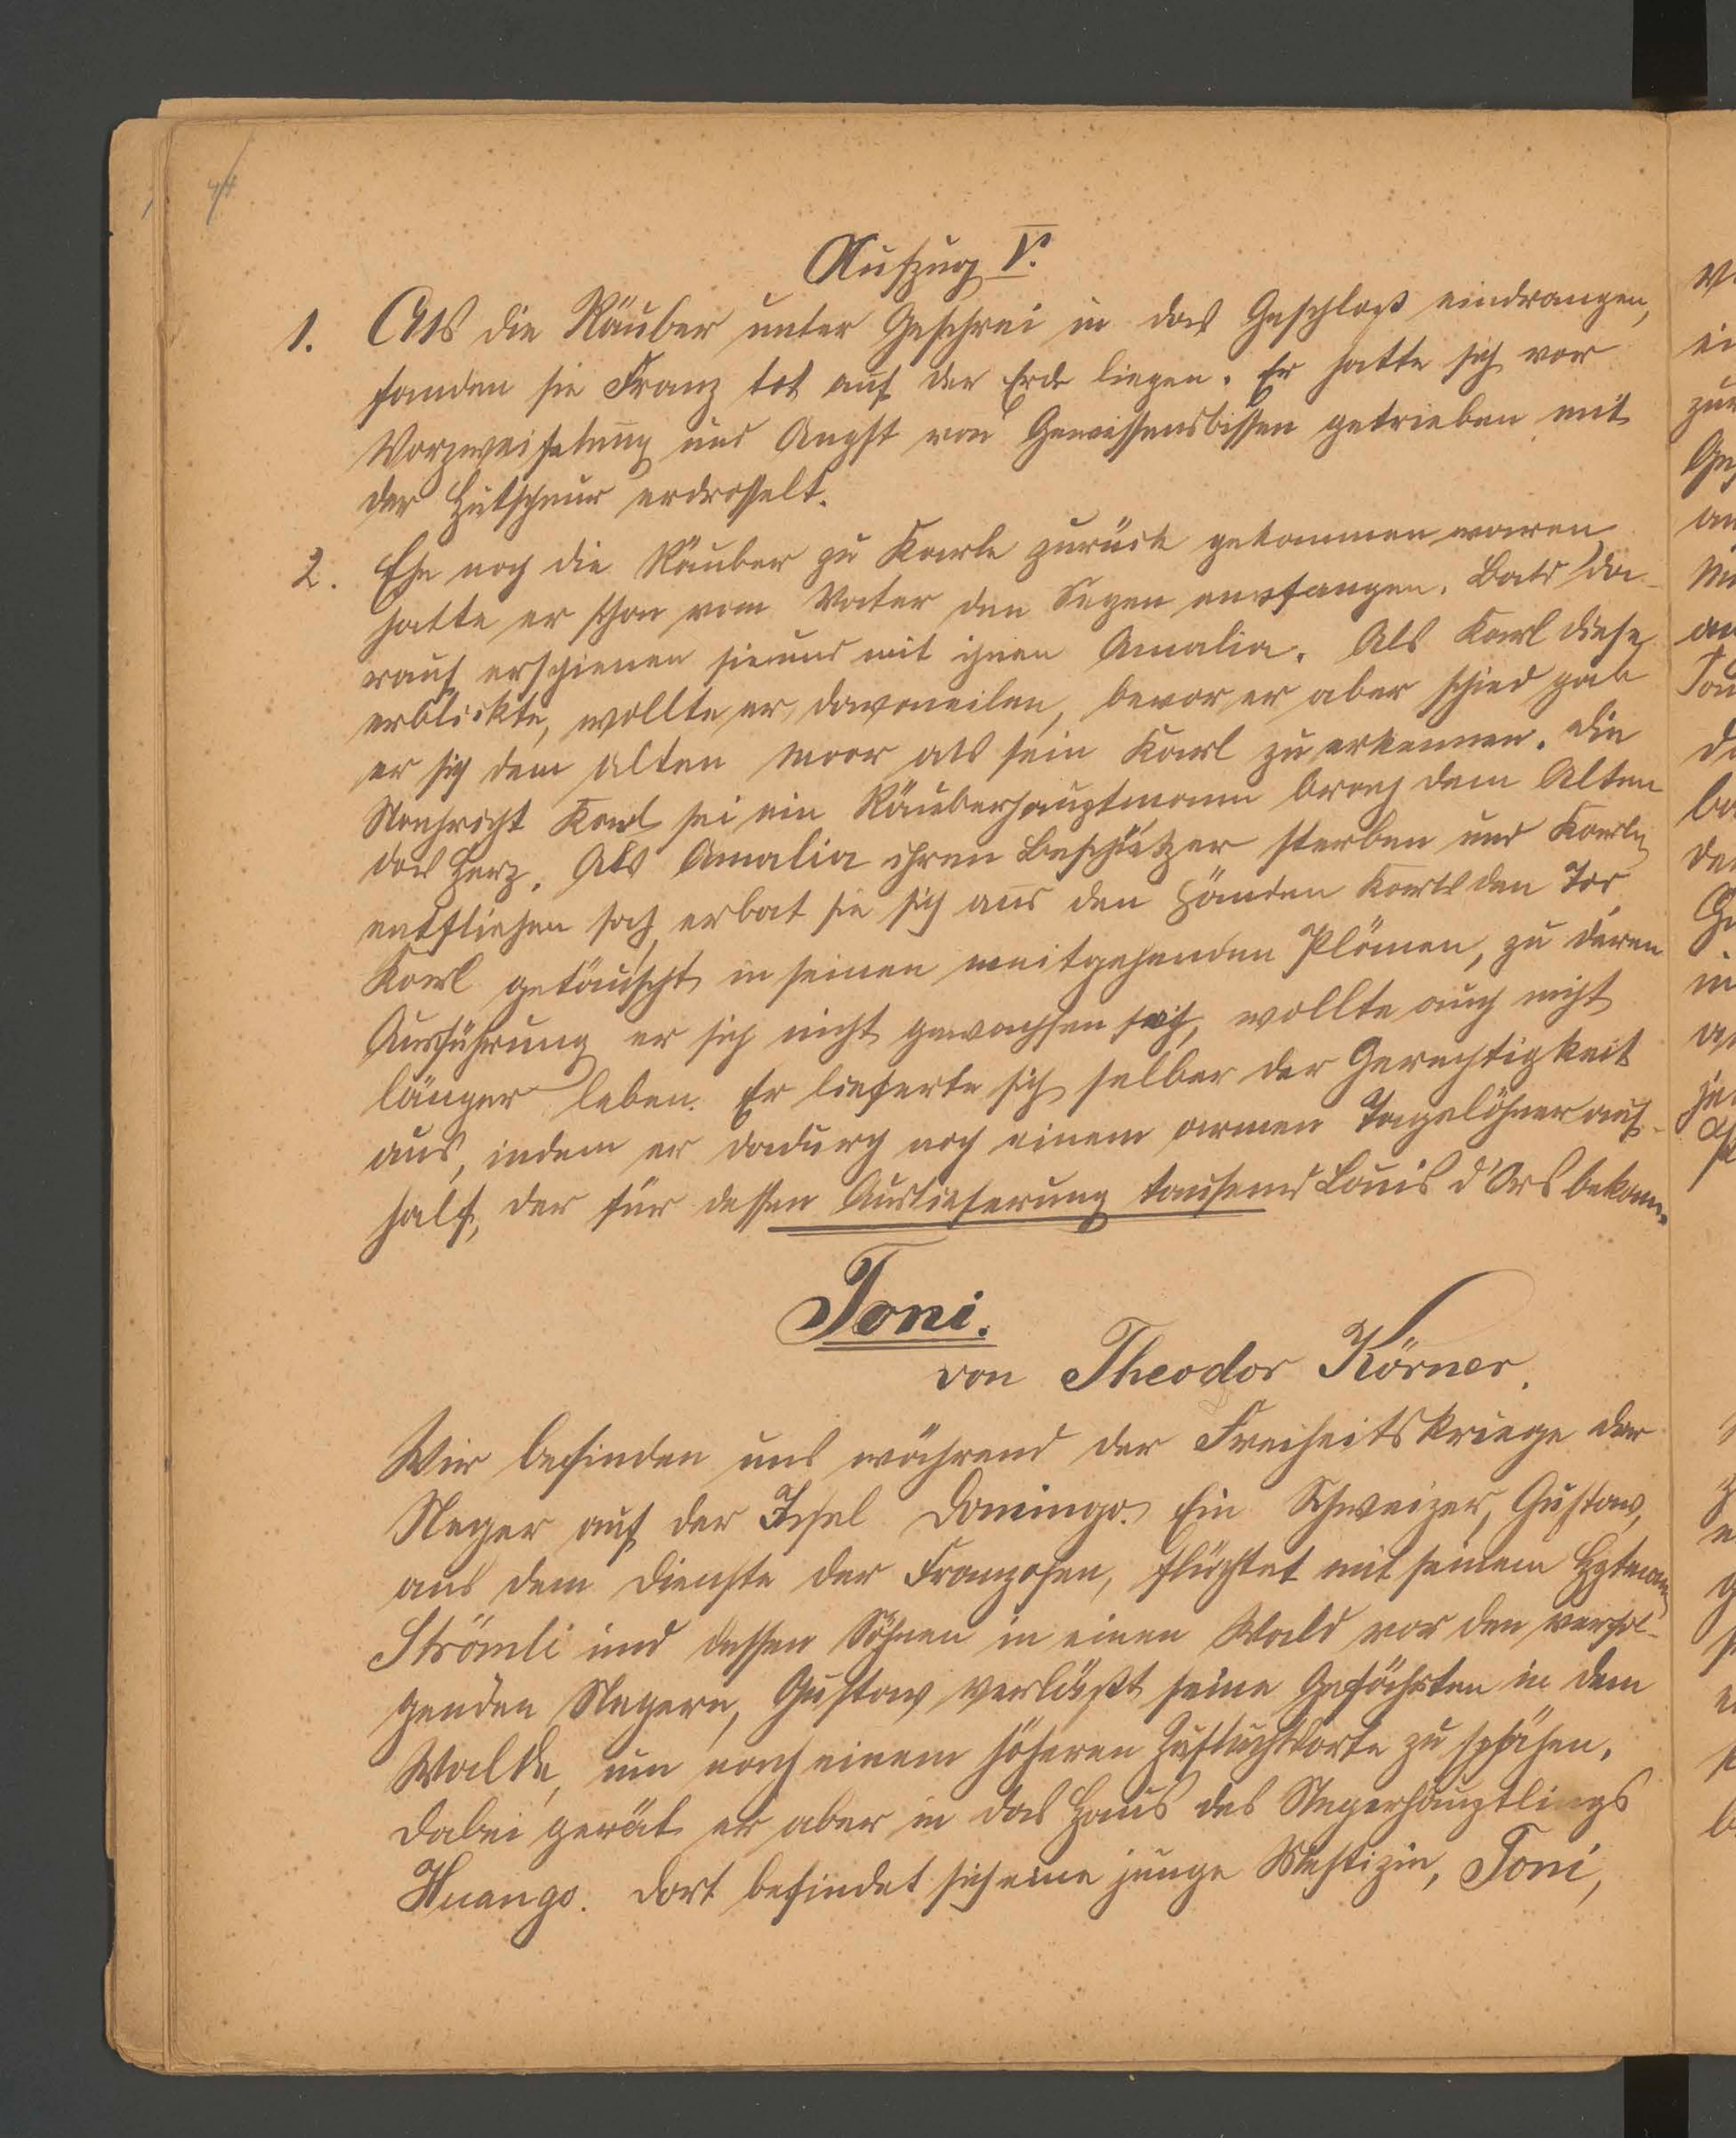 44
Aufzug V.
1. Als die Räuber unter Geschrei in das Geschloß eindrangen,
fanden sie Franz tot auf der Erde liegen. Er hatte sich vor
Verzweifelung und Angst von Gewissensbissen getrieben mit
der Hutschnur erdrosselt.
2. Ehe noch die Räuber zu Karle zurück gekommen waren
hatte er schon vom Vater den Segen empfangen. Bald da-
rauf erschienen sie und mit ihnen Amalia. Als Karl diese
erblickte, wollte er davoneilen, bevor er aber schied gab
er sich dem alten Moor als sein Karl zu erkennen. Die
Nachricht Karl sei ein Räuberhauptmann brach dem Alten
das Herz. Als Amalia ihren Beschützer sterben und Karln
entfliehen sah, erbat sie sich aus den Händen Karls den Tod
Karl getäuscht in seinen weitgehenden Plänen, zu deren
Ausführung er sich nicht gewachsen sah, wollte auch nicht
länger leben. Er lieferte sich selber der Gerechtigkeit
aus, indem er dadurch noch einem armen Tagelöhner auf-
half, der für dessen Auslieferung tausend Louis d'Ors bekam.
Toni.
von Theodor Körner.
Wir befinden uns während der Freiheitskriege der
Neger auf der Insel Domingo. Ein Schweizer, Gustav,
aus dem Dienste der Franzosen, flüchtet mit seinem Hptmann
Strömli und dessen Söhnen in einen Wald vor den verfol-
genden Negern, Gustav verläßt seine Gefährten in dem
Walde, um nach einem höheren Zufluchtsorte zu spähen.
Dabei gerät er aber in das Haus des Negerhäuptlings
Huango. Dort befindet sich eine junge Mestizin, Toni,